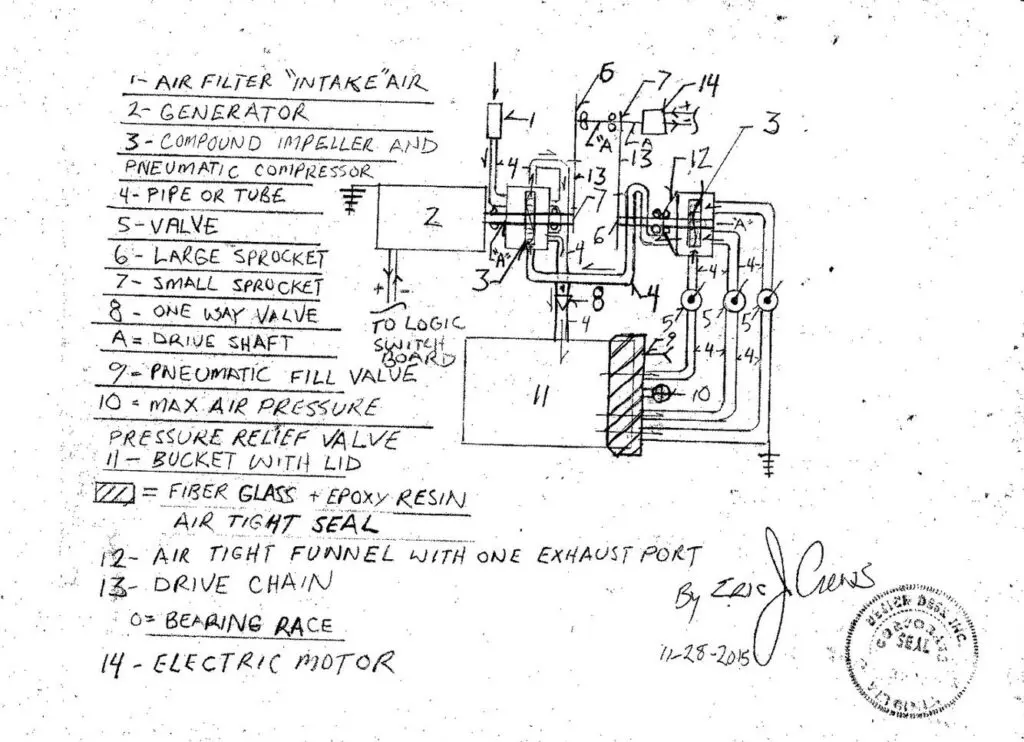 1- AIR FILTER "INTAKE" AIR
2- GENERATOR
3- COMPOUND IMPELLER AND
PNEUMATIC COMPRESSOR
4- PIPE OR TUBE
5- VALVE
6- LARGE SPROCKET
7- SMALL SPROCKET
8- ONE WAY VALVE
A = DRIVE SHAFT
9- PNEUMATIC FILL VALVE
10 = MAX AIR PRESSURE
PRESSURE RELIEF VALVE
11- BUCKET WITH LID
= FIBER GLASS + EPOXY RESIN
AIR TIGHT SEAL
12- AIR TIGHT FUNNEL WITH ONE EXHAUST PORT
13- DRIVE CHAIN
0= BEARING RACE
14- ELECTRIC MOTOR
6
7
14
1
8
"A"
A
3
4
13
13
12
2
7
6
"A"
"A"
3
4
8
4
4
4
4
4
5
5
5
+ -
TO LOGIC
SWITCH
BOARD
4
9
4
4
4
11
10
By ERIC J Crews
11-28-2015
DESIGN DEPT INC.
CORPORATE
SEAL